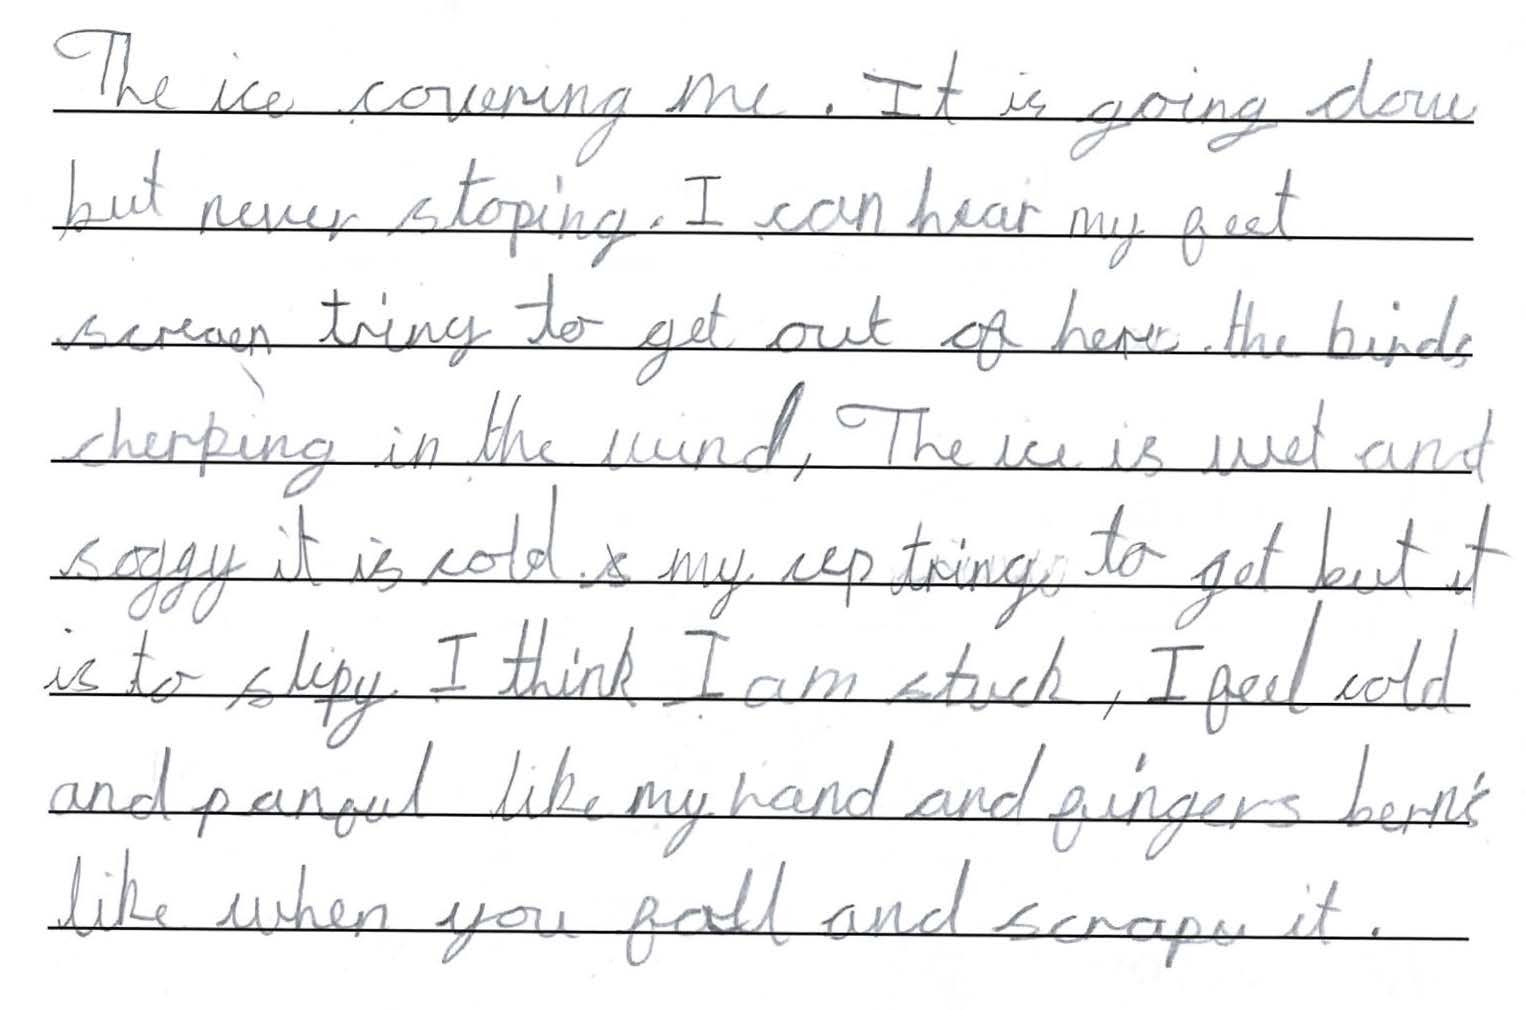 The ice covering me. It is going down
but never stoping. I can hear my feet
screaen tring to get out of here. the birds
cherping in the wind, The ice is wet and
soggy it is cold. my up tring to get but it
is to slipy. I think I am stuck, I feel cold
and panful like my hand and fingers bern's
like when you fall and scrape it.